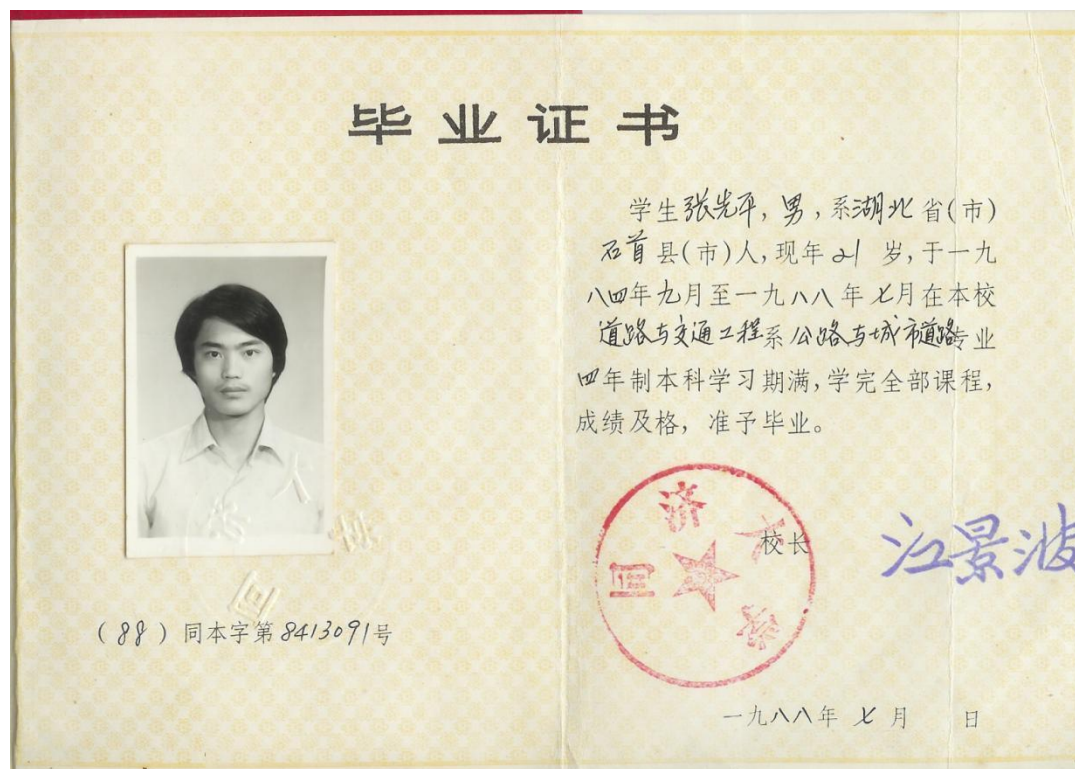 毕业证书
学生张光平,男,系湖北省(市)
石首县(市)人,现年21岁,于一九
八四年九月至一九八八年七月在本校
道路与交通工程系公路与城市道路专业
四年制本科学习期满,学完全部课程,
成绩及格,准予毕业。
同济大学
校长 江景波
(88)同本字第8413091号
一九八八年七月 日